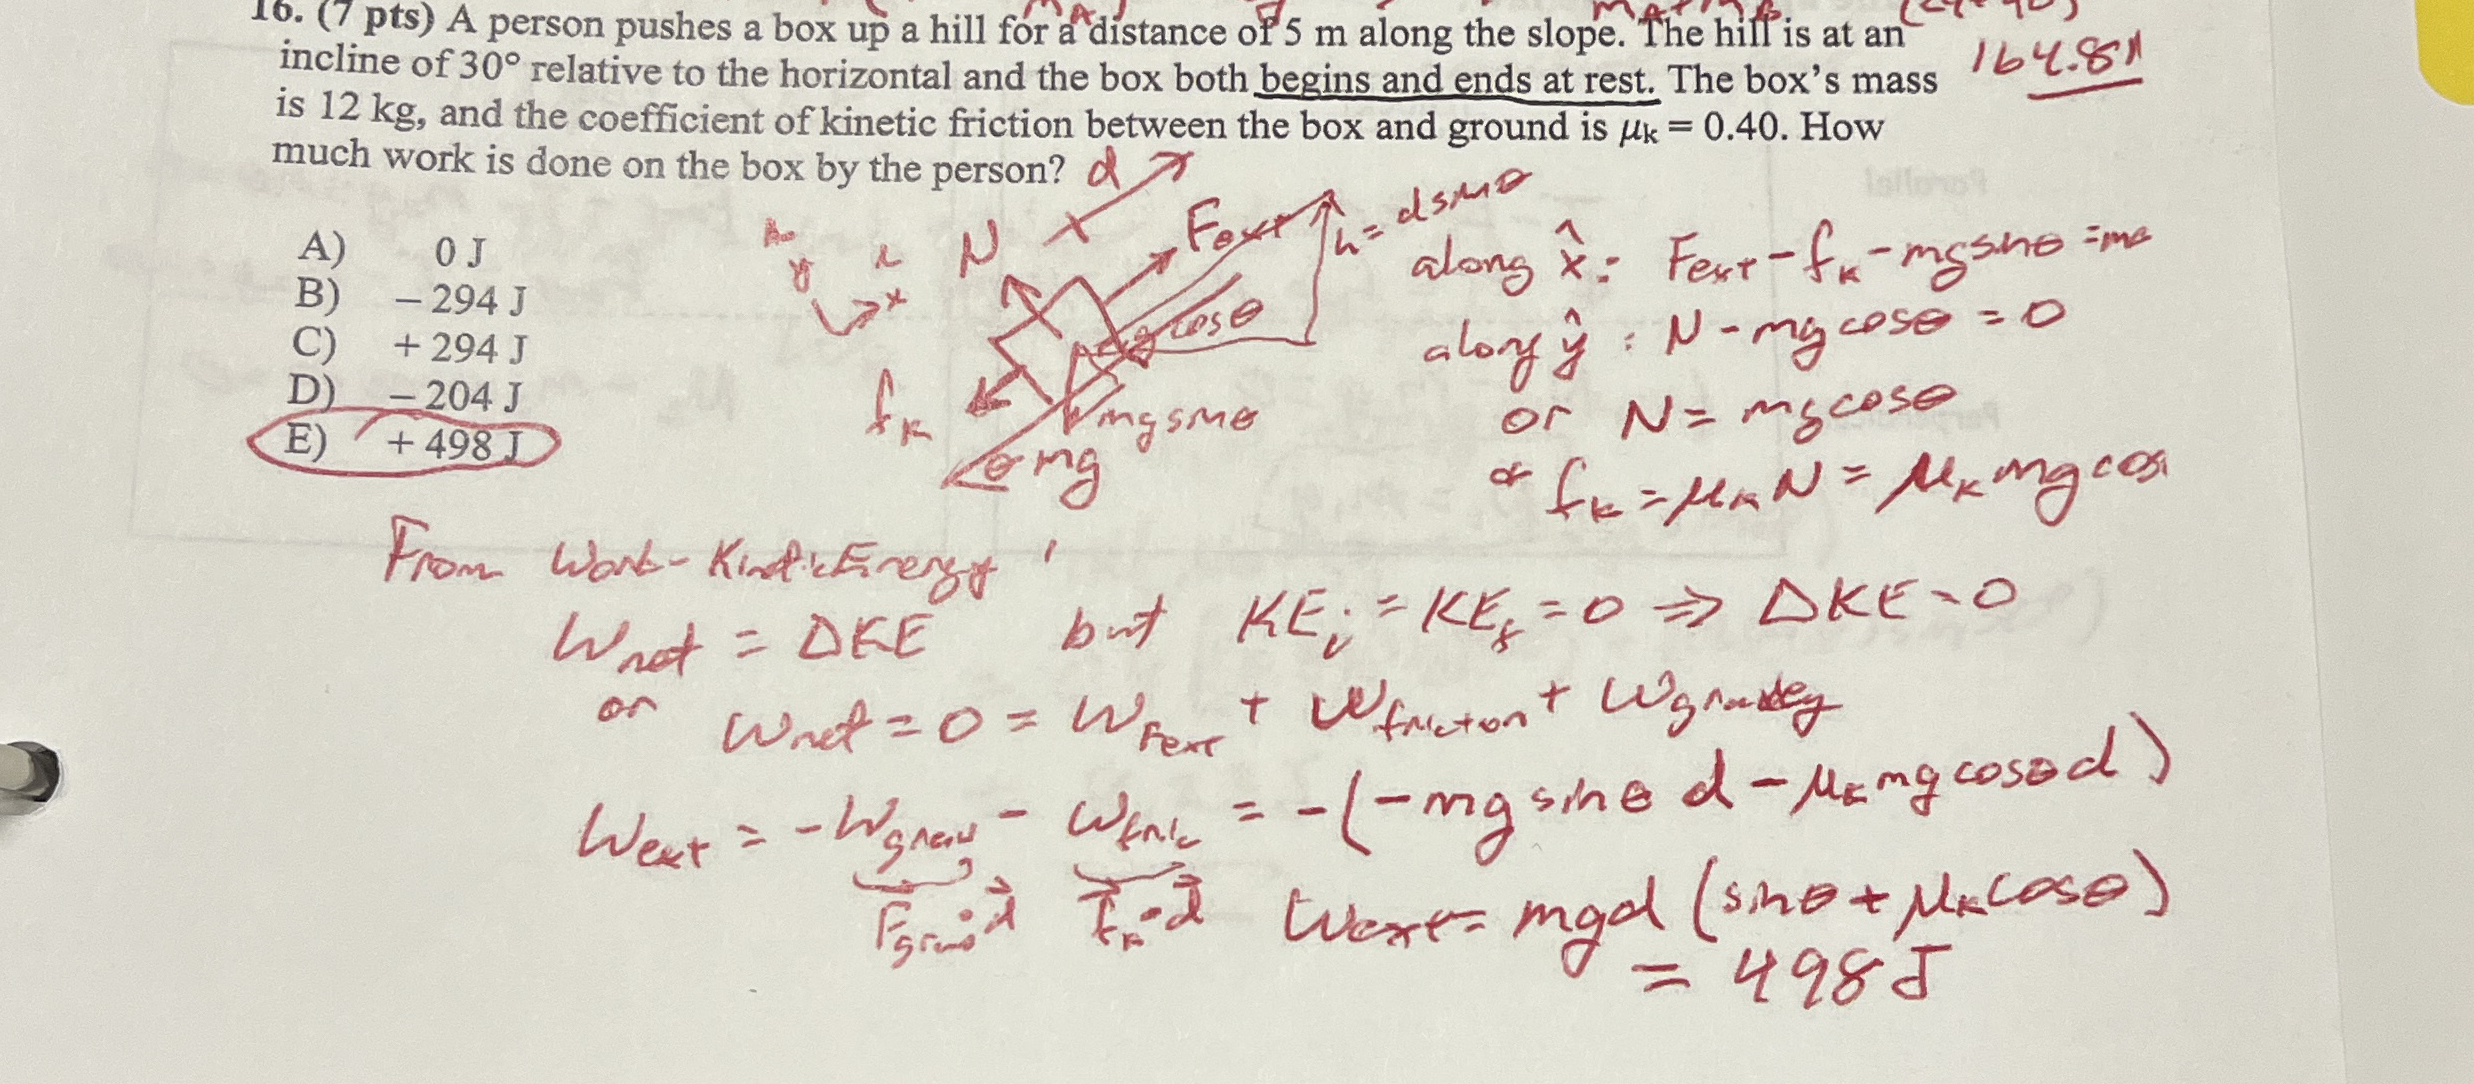 16. (7 pts) A person pushes a box up a hill for a distance of 5 m along the slope. The hill is at an
incline of 30° relative to the horizontal and the box both begins and ends at rest. The box's mass
is 12 kg, and the coefficient of kinetic friction between the box and ground is μk = 0.40. How
much work is done on the box by the person?
164.8N
A) 0 J
B) – 294 J
C) + 294 J
D) – 204 J
E) + 498 J
d
N
Fext
h = dsinθ
y
x
cosθ
fk
mgsinθ
θ mg
along x̂: Fext - fk - mgsinθ = ma
along ŷ: N - mgcosθ = 0
or N = mgcosθ
or fk = μkN = μkmgcos
From Work-Kinetic Energy
Wnet = ΔKE but KEi = KEf = 0 ⇒ ΔKE = 0
or Wnet = 0 = WFext + Wfriction + Wgravity
Wext = -Wgrav - Wfric = -(-mgsinθd - μkmgcosθd)
Fgrav·d fk·d Wext = mgd(sinθ + μkcosθ)
= 498J